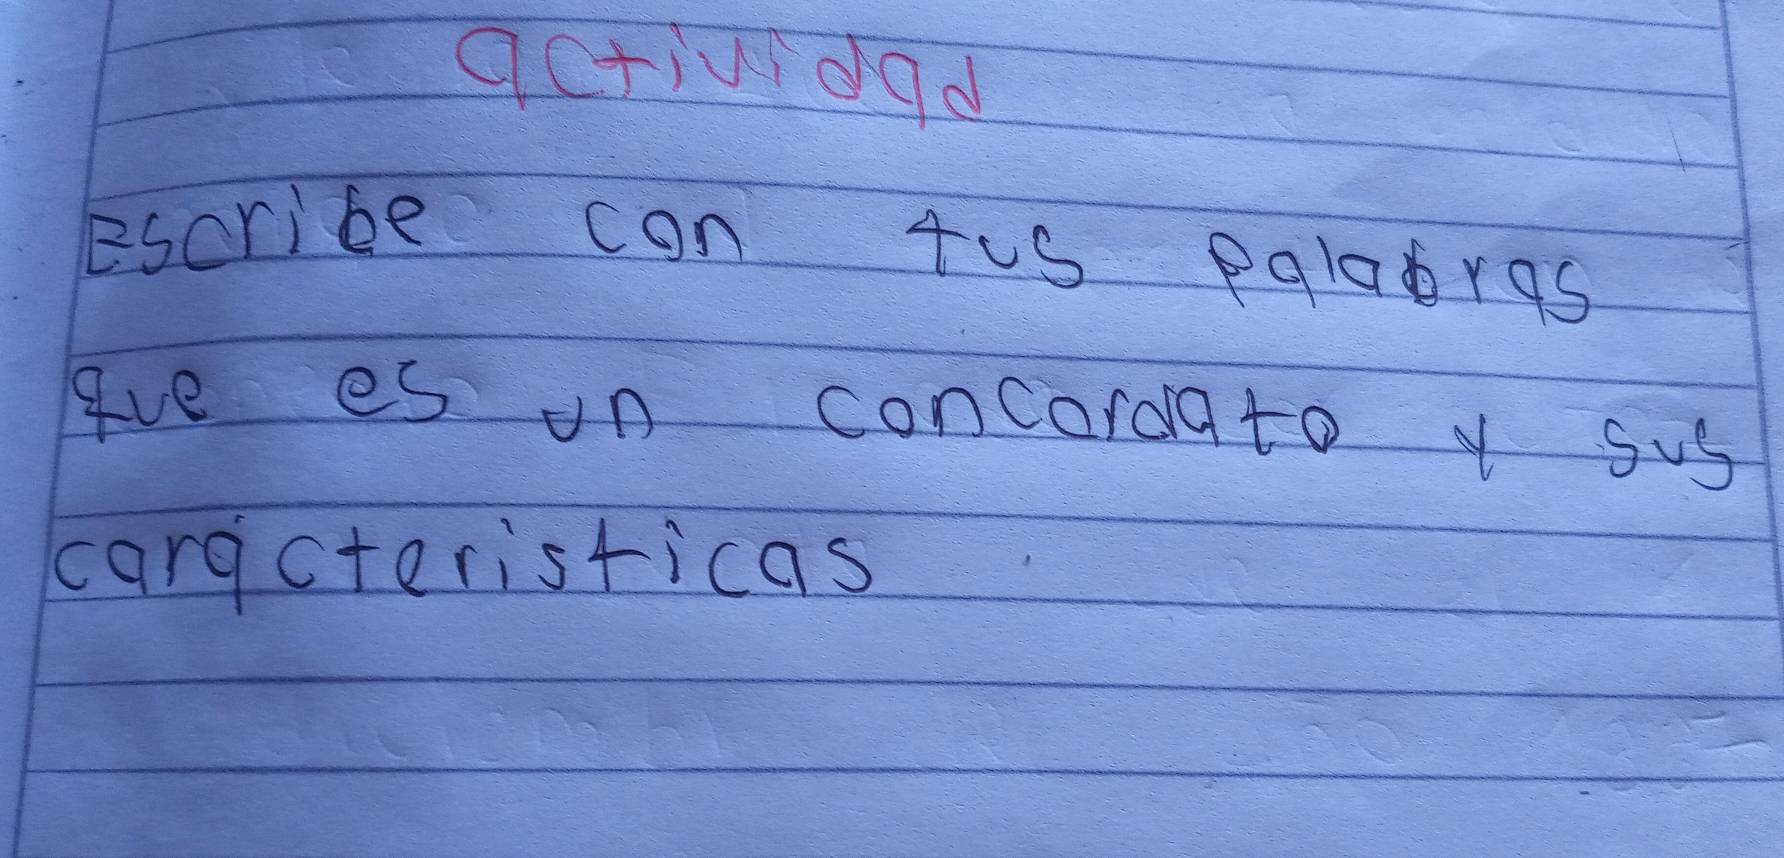 actividad
Escribe con tus palabras
que es un concordato y sus
caracteristicas